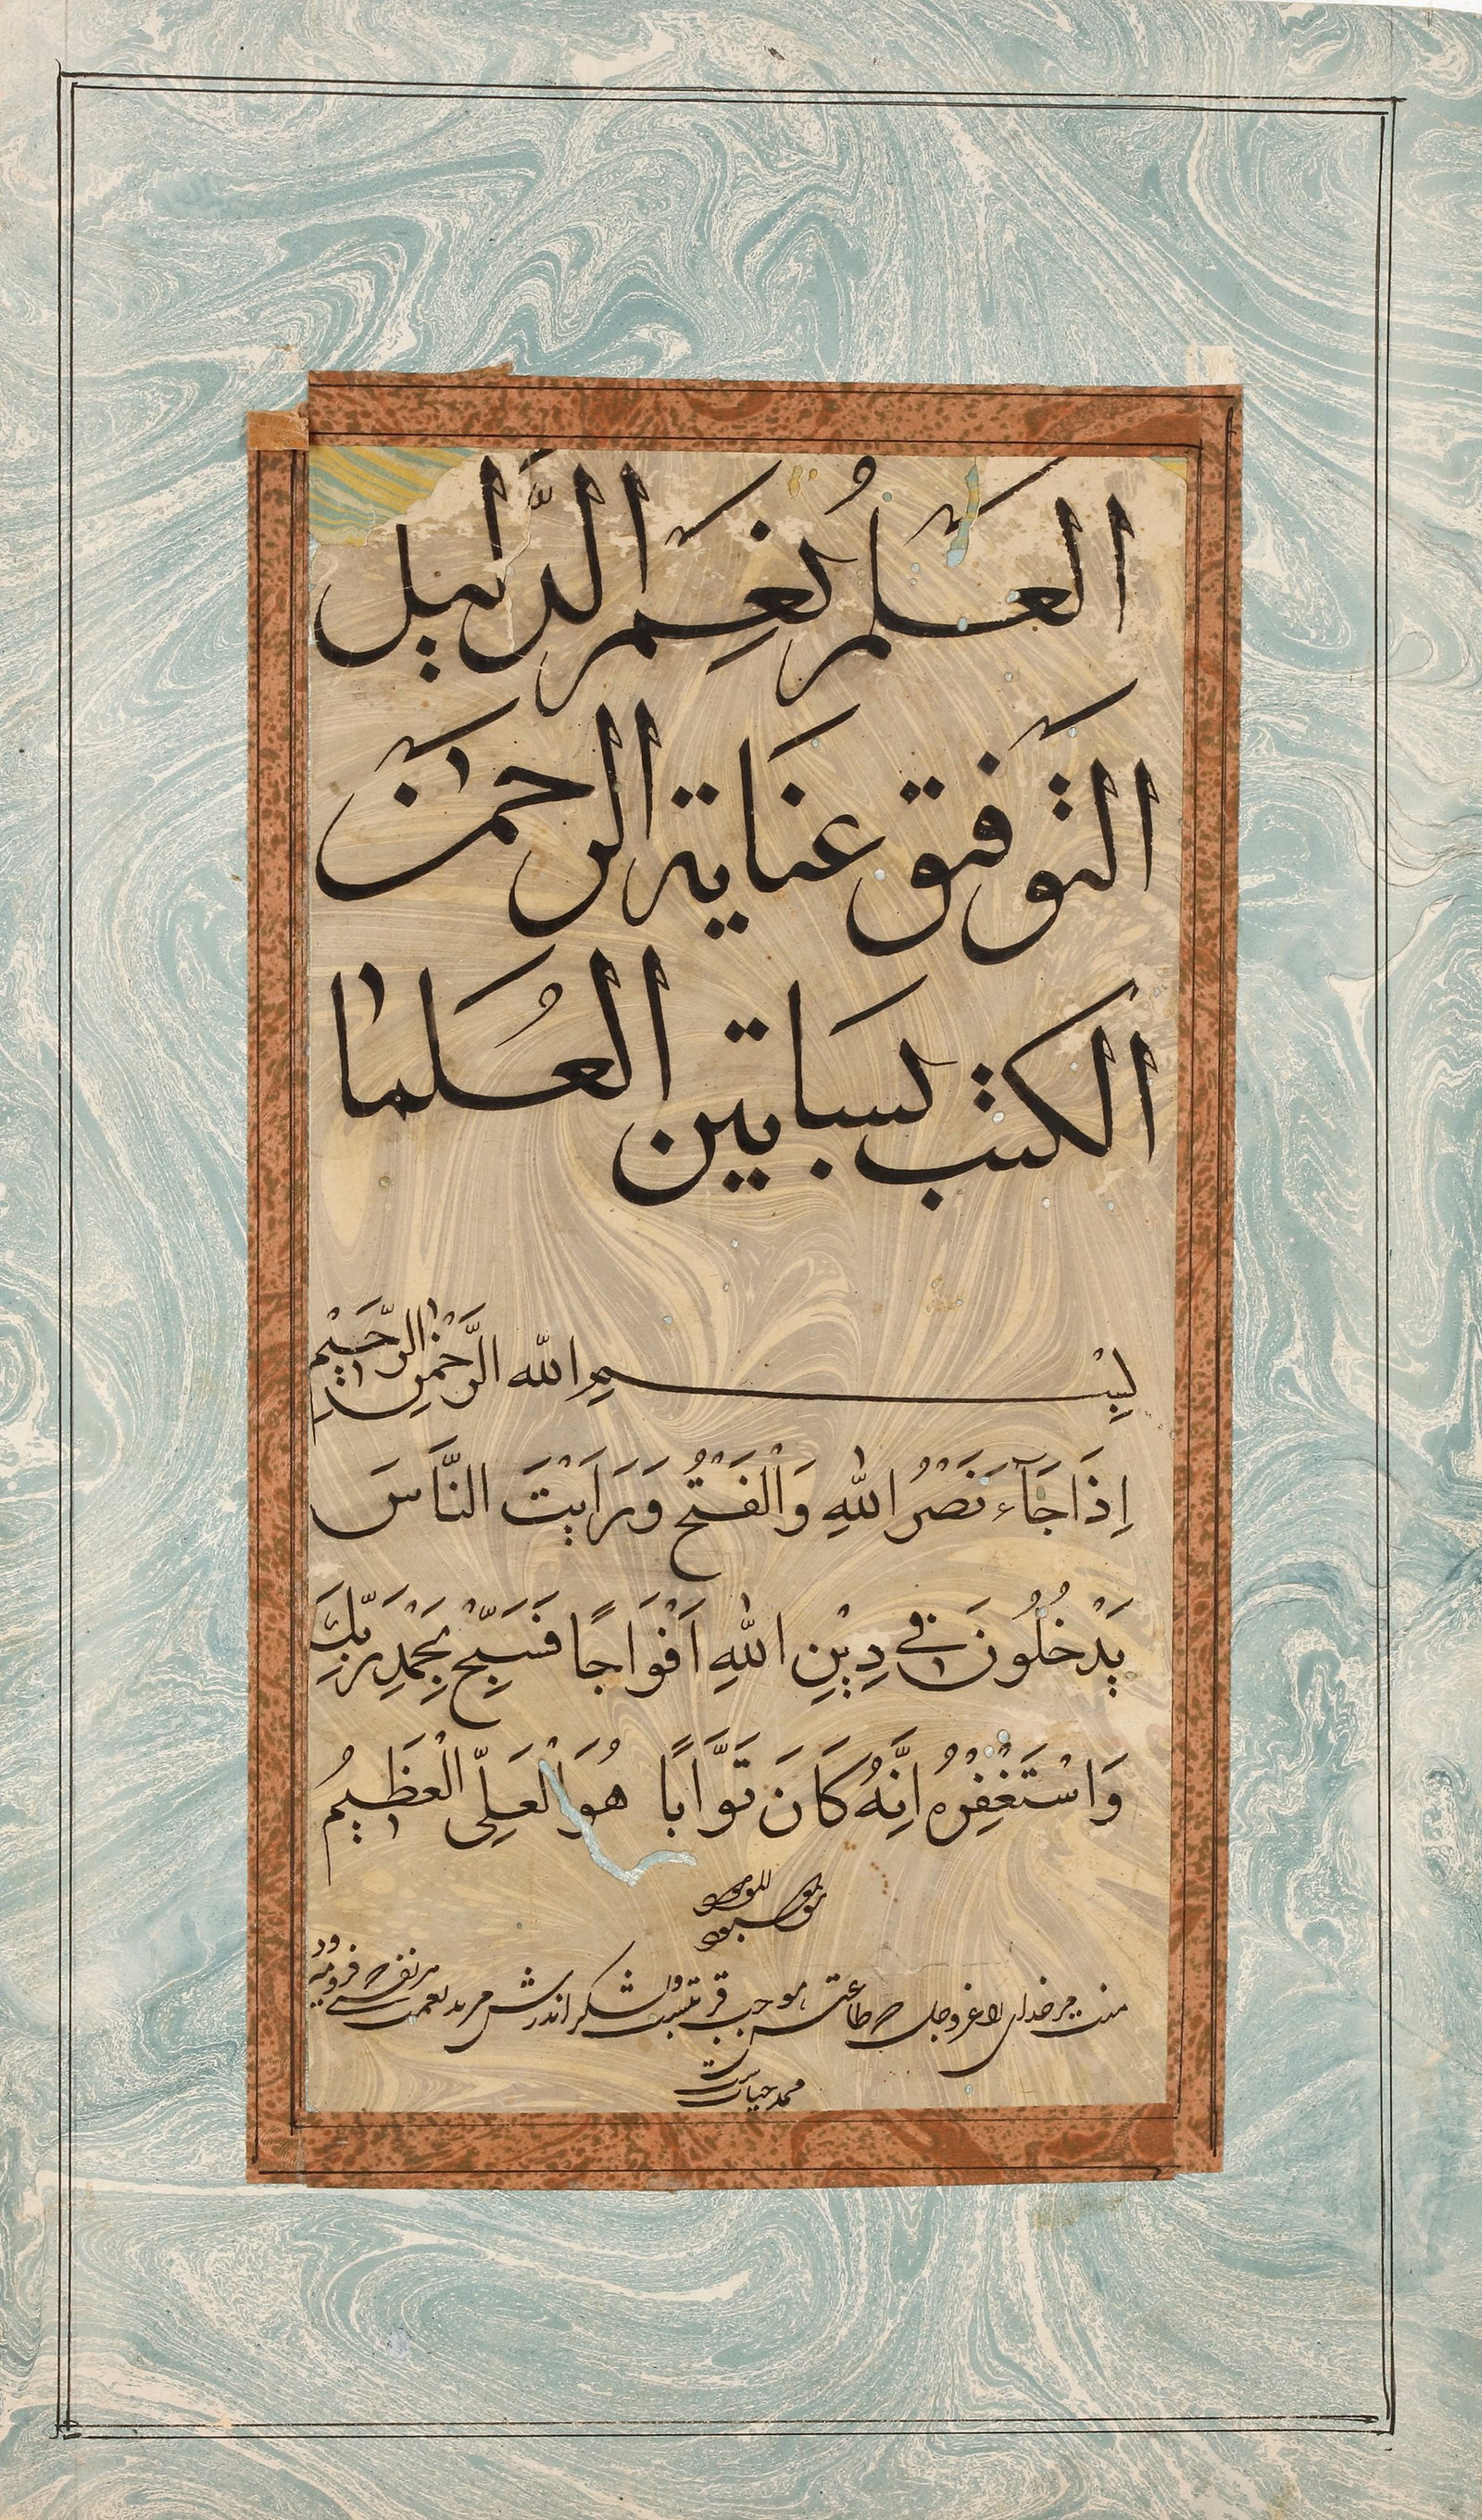 العلم نعم الدليل
التوفيق عناية الرحمن
الكتب بساتين العلماء
بِسْمِ الله الرَّحْمٰنِ الرَّحِيْمِ
اِذَا جَآءَ نَصْرُ اللهِ وَالْفَتْحُ وَرَاَيْتَ النَّاسَ
يَدْخُلُونَ فِي دِيْنِ اللهِ اَفْوَاجًا فَسَبِّحْ بِحَمْدِ رَبِّكَ
وَاسْتَغْفِرْهُ اِنَّهُ كَانَ تَوَّابًا هُوَ الْعَلِىّ الْعَظِيْمُ
منت مر خدای را عز وجل که طاعتش موجب قربتست و بشکر اندرش مزید نعمت هر نفسی که فرو میرود
محمد حیات